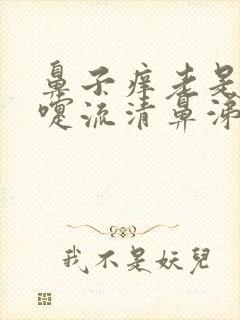 鼻子痒老是
嚏流清鼻涕
我不是妖兒